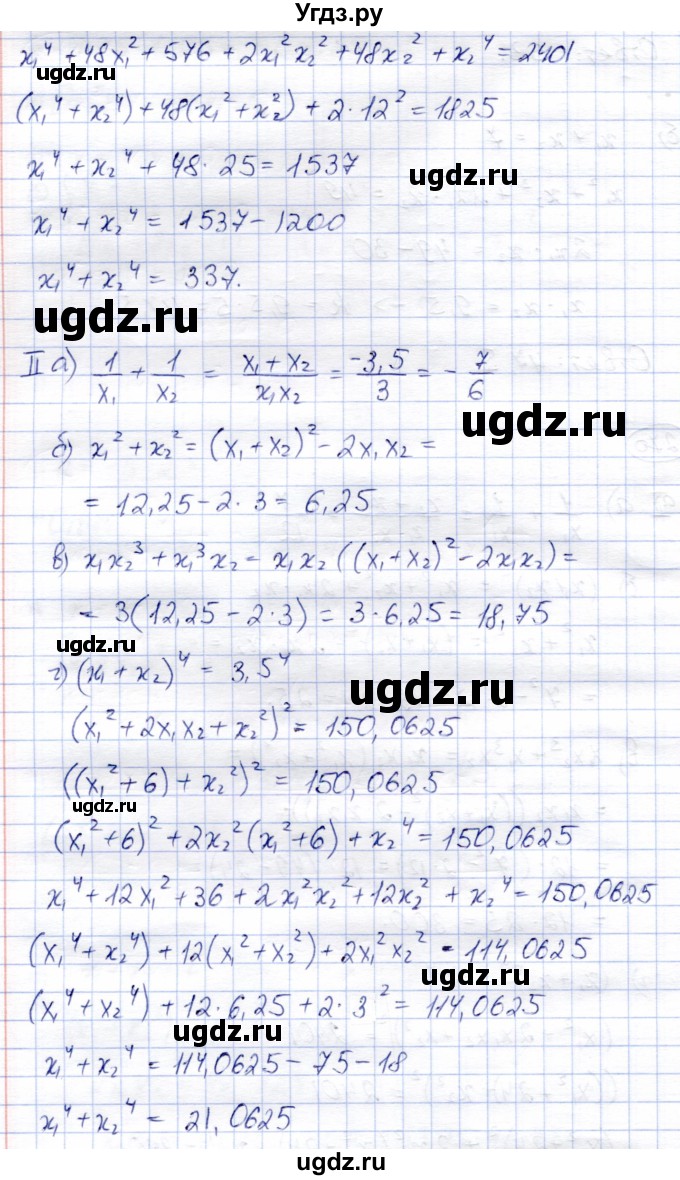 Угдз.ру
x₁⁴ + 48x₁² + 576 + 2x₁²x₂² + 48x₂² + x₂⁴ = 2401
(x₁⁴ + x₂⁴) + 48(x₁² + x₂²) + 2·12² = 1825
x₁⁴ + x₂⁴ + 48·25 = 1537
ugdz.ru
x₁⁴ + x₂⁴ = 1537 - 1200
x₁⁴ + x₂⁴ = 337.
ugdz.ru
ugdz.ru
II а) 1/x₁ + 1/x₂ = (x₁ + x₂)/(x₁x₂) = (-3,5)/3 = -7/6
ugdz.ru
б) x₁² + x₂² = (x₁ + x₂)² - 2x₁x₂ =
= 12,25 - 2·3 = 6,25
ugdz.ru
в) x₁x₂³ + x₁³x₂ = x₁x₂((x₁ + x₂)² - 2x₁x₂) =
= 3(12,25 - 2·3) = 3·6,25 = 18,75
ugdz.ru
г) (x₁ + x₂)⁴ = 3,5⁴
ugdz.ru
(x₁² + 2x₁x₂ + x₂²)² = 150,0625
((x₁² + 6) + x₂²)² = 150,0625
ugdz.ru
(x₁² + 6)² + 2x₂²(x₁² + 6) + x₂⁴ = 150,0625
x₁⁴ + 12x₁² + 36 + 2x₁²x₂² + 12x₂² + x₂⁴ = 150,0625
(x₁⁴ + x₂⁴) + 12(x₁² + x₂²) + 2x₁²x₂² = 114,0625
ugdz.ru
(x₁⁴ + x₂⁴) + 12·6,25 + 2·3² = 114,0625
ugdz.ru
x₁⁴ + x₂⁴ = 114,0625 - 75 - 18
x₁⁴ + x₂⁴ = 21,0625
ugdz.ru
ugdz.ru